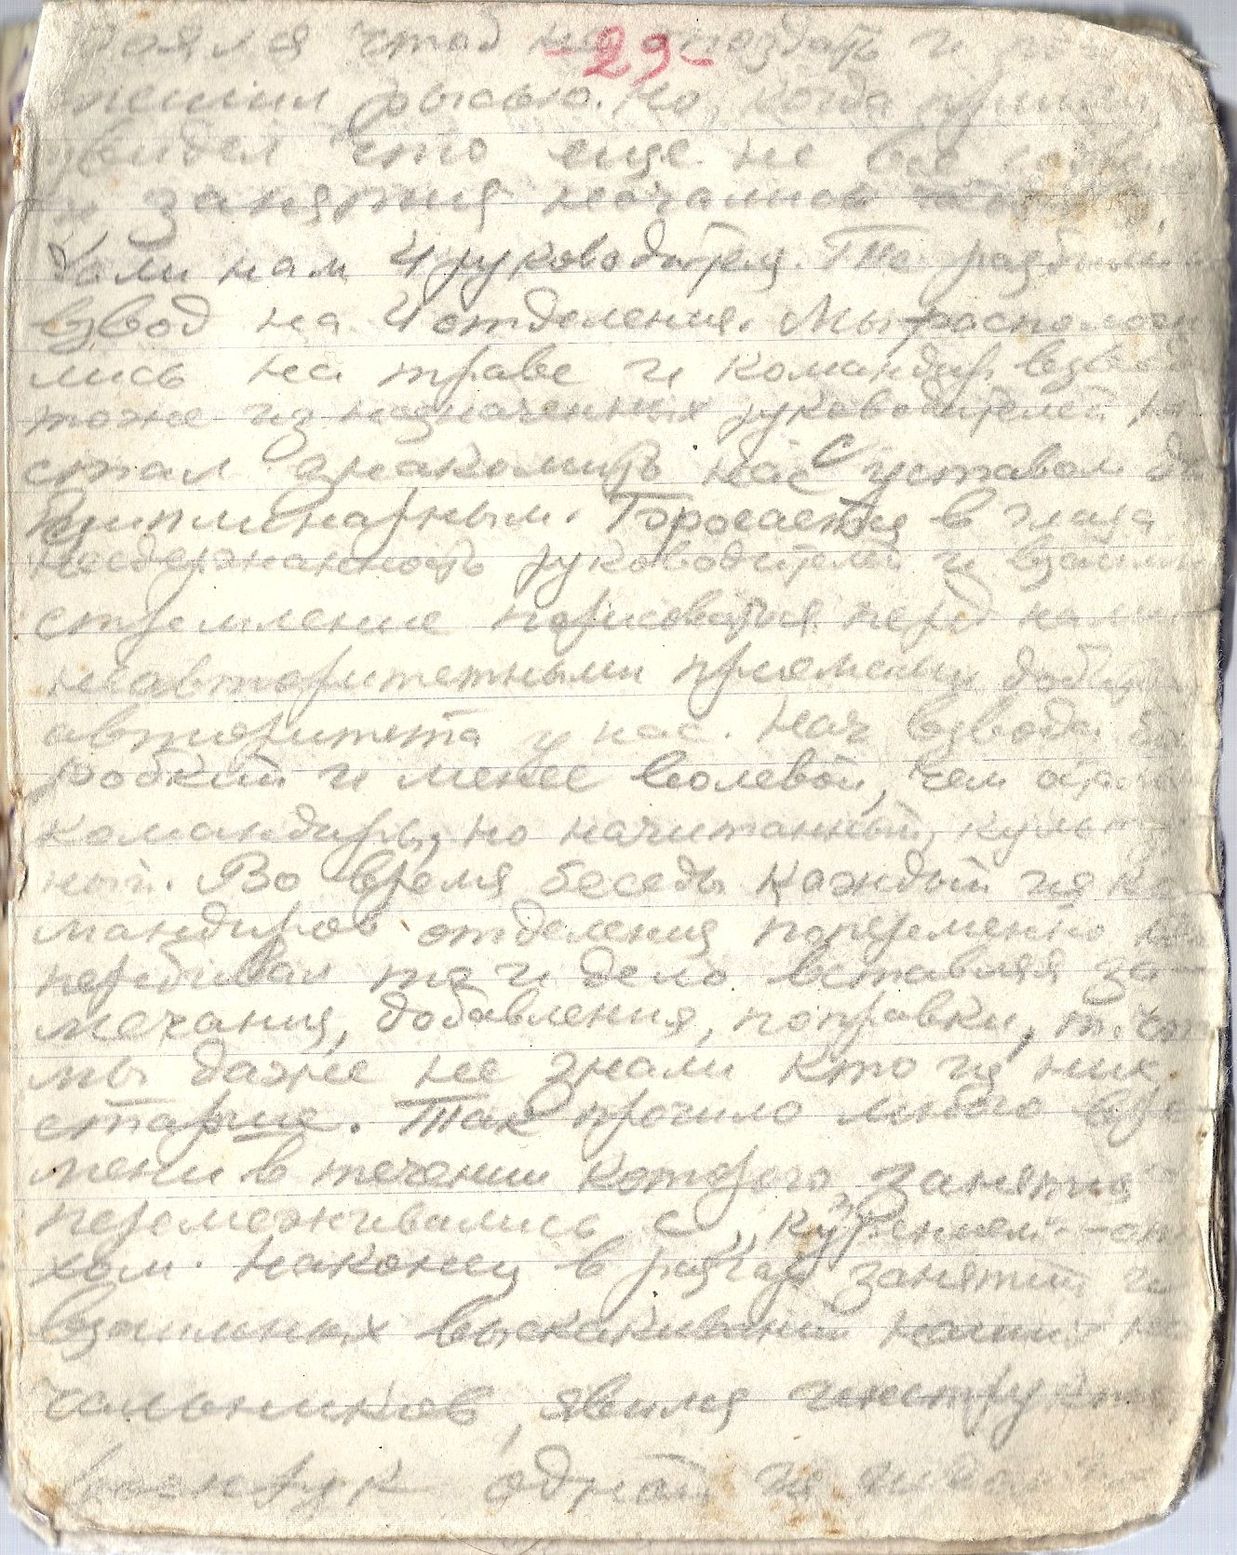 29
боялся чтоб не опоздать и
пешил рысью. Но, когда пришел
увидел что еще не все
и занятия неочались
Дали нам 4 руководителя. Те разбили
взвод на 4 отделения. Мы расположи
лись на траве и командир взвода
тоже из назначенных руководителей
стал знакомить нас с уставом ди
циплинарным. Бросается в глаза
несдержанность руководителей и взаимн
стремление порисоваться перед нами
неавторитетными приемами добиться
авторитета у нас. Нач взвода бо
робкий и менее волевой, чем
командиры, но начитанный, культ
ный. Во время беседы каждый из ко-
мандиров отделения попеременно
перебивал то и дело вставляя за-
мечания, добавления, поправки, т. что
мы даже не знали кто из них
старше. Так прошло много вре
мени в течении которого занятия
перемеживались с „курением"
Наконец в разгар занятий и
взаимных выскакиваний наших на
чальников, явился инструкт
военрук одной из школ